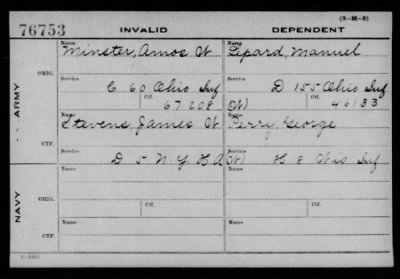 (3-M-5)
76753 INVALID DEPENDENT
ARMY
ORIG.
Name Minster, Amos W Name Lepard, Manuel
Service C 60 Ohio Inf Service D 155 Ohio Inf
Ctf. 67208 (W) Ctf. 46133
CTF.
Name Stevens, James W Name Perry, George
Service D 5 N Y H A (W) Service H 8 Wis Inf
NAVY
ORIG.
Name Name
Service Ctf. Service Ctf.
CTF.
Name Name